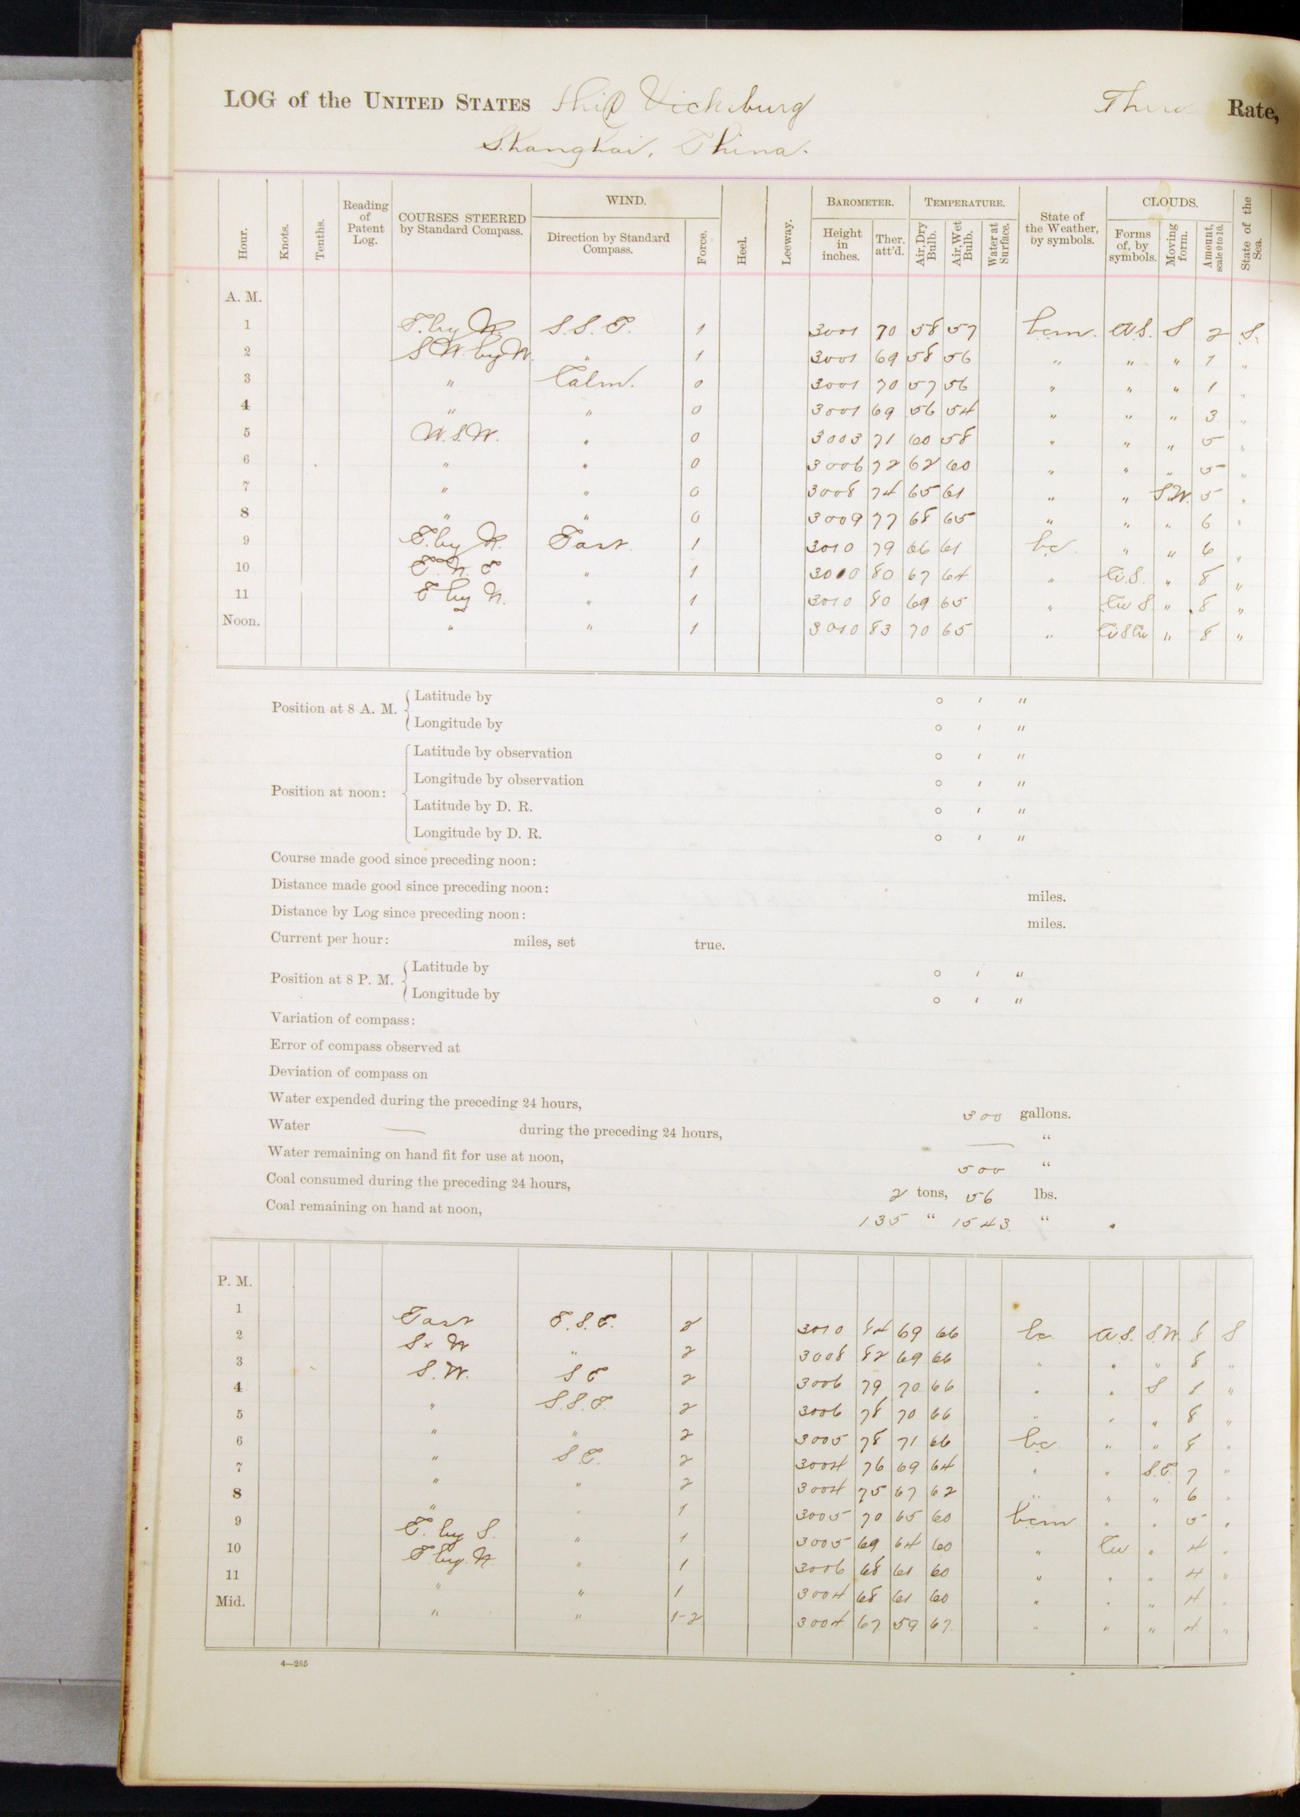 LOG of the UNITED STATES Ship Vicksburg Third Rate,
Shanghai, China.
Hour. Knots. Tenths. Reading of Patent Log. COURSES STEERED by Standard Compass. WIND. Direction by Standard Compass. Force. Heel. Leeway. BAROMETER. Height in inches. Ther. att'd. TEMPERATURE. Air, Dry Bulb. Air, Wet Bulb. Water at Surface. State of the Weather, by symbols. CLOUDS. Forms of, by symbols. Moving form. Amount, scale 0 to 10. State of the Sea.
A. M.
1 E. by N. S.S.E. 1 3001 70 58 57 bcm. S 2 S.
2 S W. by W. " 1 3001 69 58 56 " " " 1 "
3 " Calm. 0 3001 70 57 56 " " " 1 "
4 " " 0 3001 69 56 54 " " " 3 "
5 W.S.W. " 0 3003 71 60 58 " " " 5 "
6 " " 0 3006 72 62 60 " " " 5 "
7 " " 0 3008 74 65 61 " " S.W. 5 "
8 " " 0 3009 77 68 65 " " " 6 "
9 E. by N. East 1 3010 79 66 61 bc. " " 6 "
10 E. N. E " 1 3010 80 67 64 " " 8 "
11 E by N. " 1 3010 80 69 65 " " 8 "
Noon. " " 1 3010 83 70 65 " " 8 "
Position at 8 A. M. Latitude by ° ' "
Longitude by ° ' "
Position at noon: Latitude by observation ° ' "
Longitude by observation ° ' "
Latitude by D. R. ° ' "
Longitude by D. R. ° ' "
Course made good since preceding noon:
Distance made good since preceding noon: miles.
Distance by Log since preceding noon: miles.
Current per hour: miles, set true.
Position at 8 P. M. Latitude by ° ' "
Longitude by ° ' "
Variation of compass:
Error of compass observed at
Deviation of compass on
Water expended during the preceding 24 hours, 300 gallons.
Water — during the preceding 24 hours, — "
Water remaining on hand fit for use at noon, 500 "
Coal consumed during the preceding 24 hours, 2 tons, 56 lbs.
Coal remaining on hand at noon, 135 " 1543 "
P. M.
1 East E.S.E. 2 3010 84 69 66 bc S.W. 8 S
2 S x W " 2 3008 82 69 66 " " " 8 "
3 S.W. S E 2 3006 79 70 66 " " S 8 "
4 " S.S.E. 2 3006 78 70 66 " " " 8 "
5 " " 2 3005 78 71 66 bc " " 8 "
6 " S.E. 2 3004 76 69 64 " " S.E. 7 "
7 " " 2 3004 75 67 62 " " " 6 "
8 " " 1 3005 70 65 60 bcm " " 5 "
9 E. by S. " 1 3005 69 64 60 " " 4 "
10 E by N. " 1 3006 68 61 60 " " " 4 "
11 " " 1 3004 68 61 60 " " " 4 "
Mid. " " 1-2 3004 67 59 67 " " " 4 "
4—265